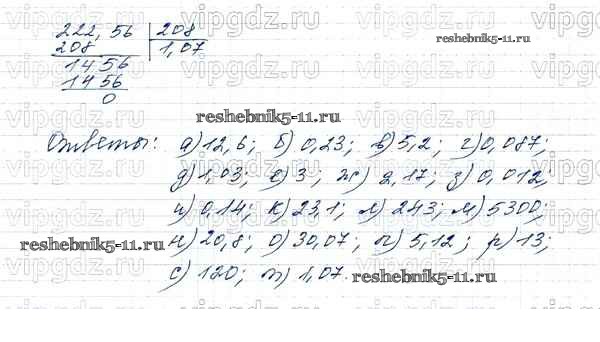 222,56 | 208
208 | 1,07
1456
1456
0
Ответы: а) 12,6; б) 0,23; в) 5,2; г) 0,087;
д) 1,03; е) 3; ж) 2,17; з) 0,012;
и) 0,14; к) 23,1; л) 243; м) 5300;
н) 20,8; о) 30,07; п) 5,12; р) 13;
с) 120; т) 1,07.
reshebnik5-11.ru
reshebnik5-11.ru
reshebnik5-11.ru
reshebnik5-11.ru
vipgdz.ru